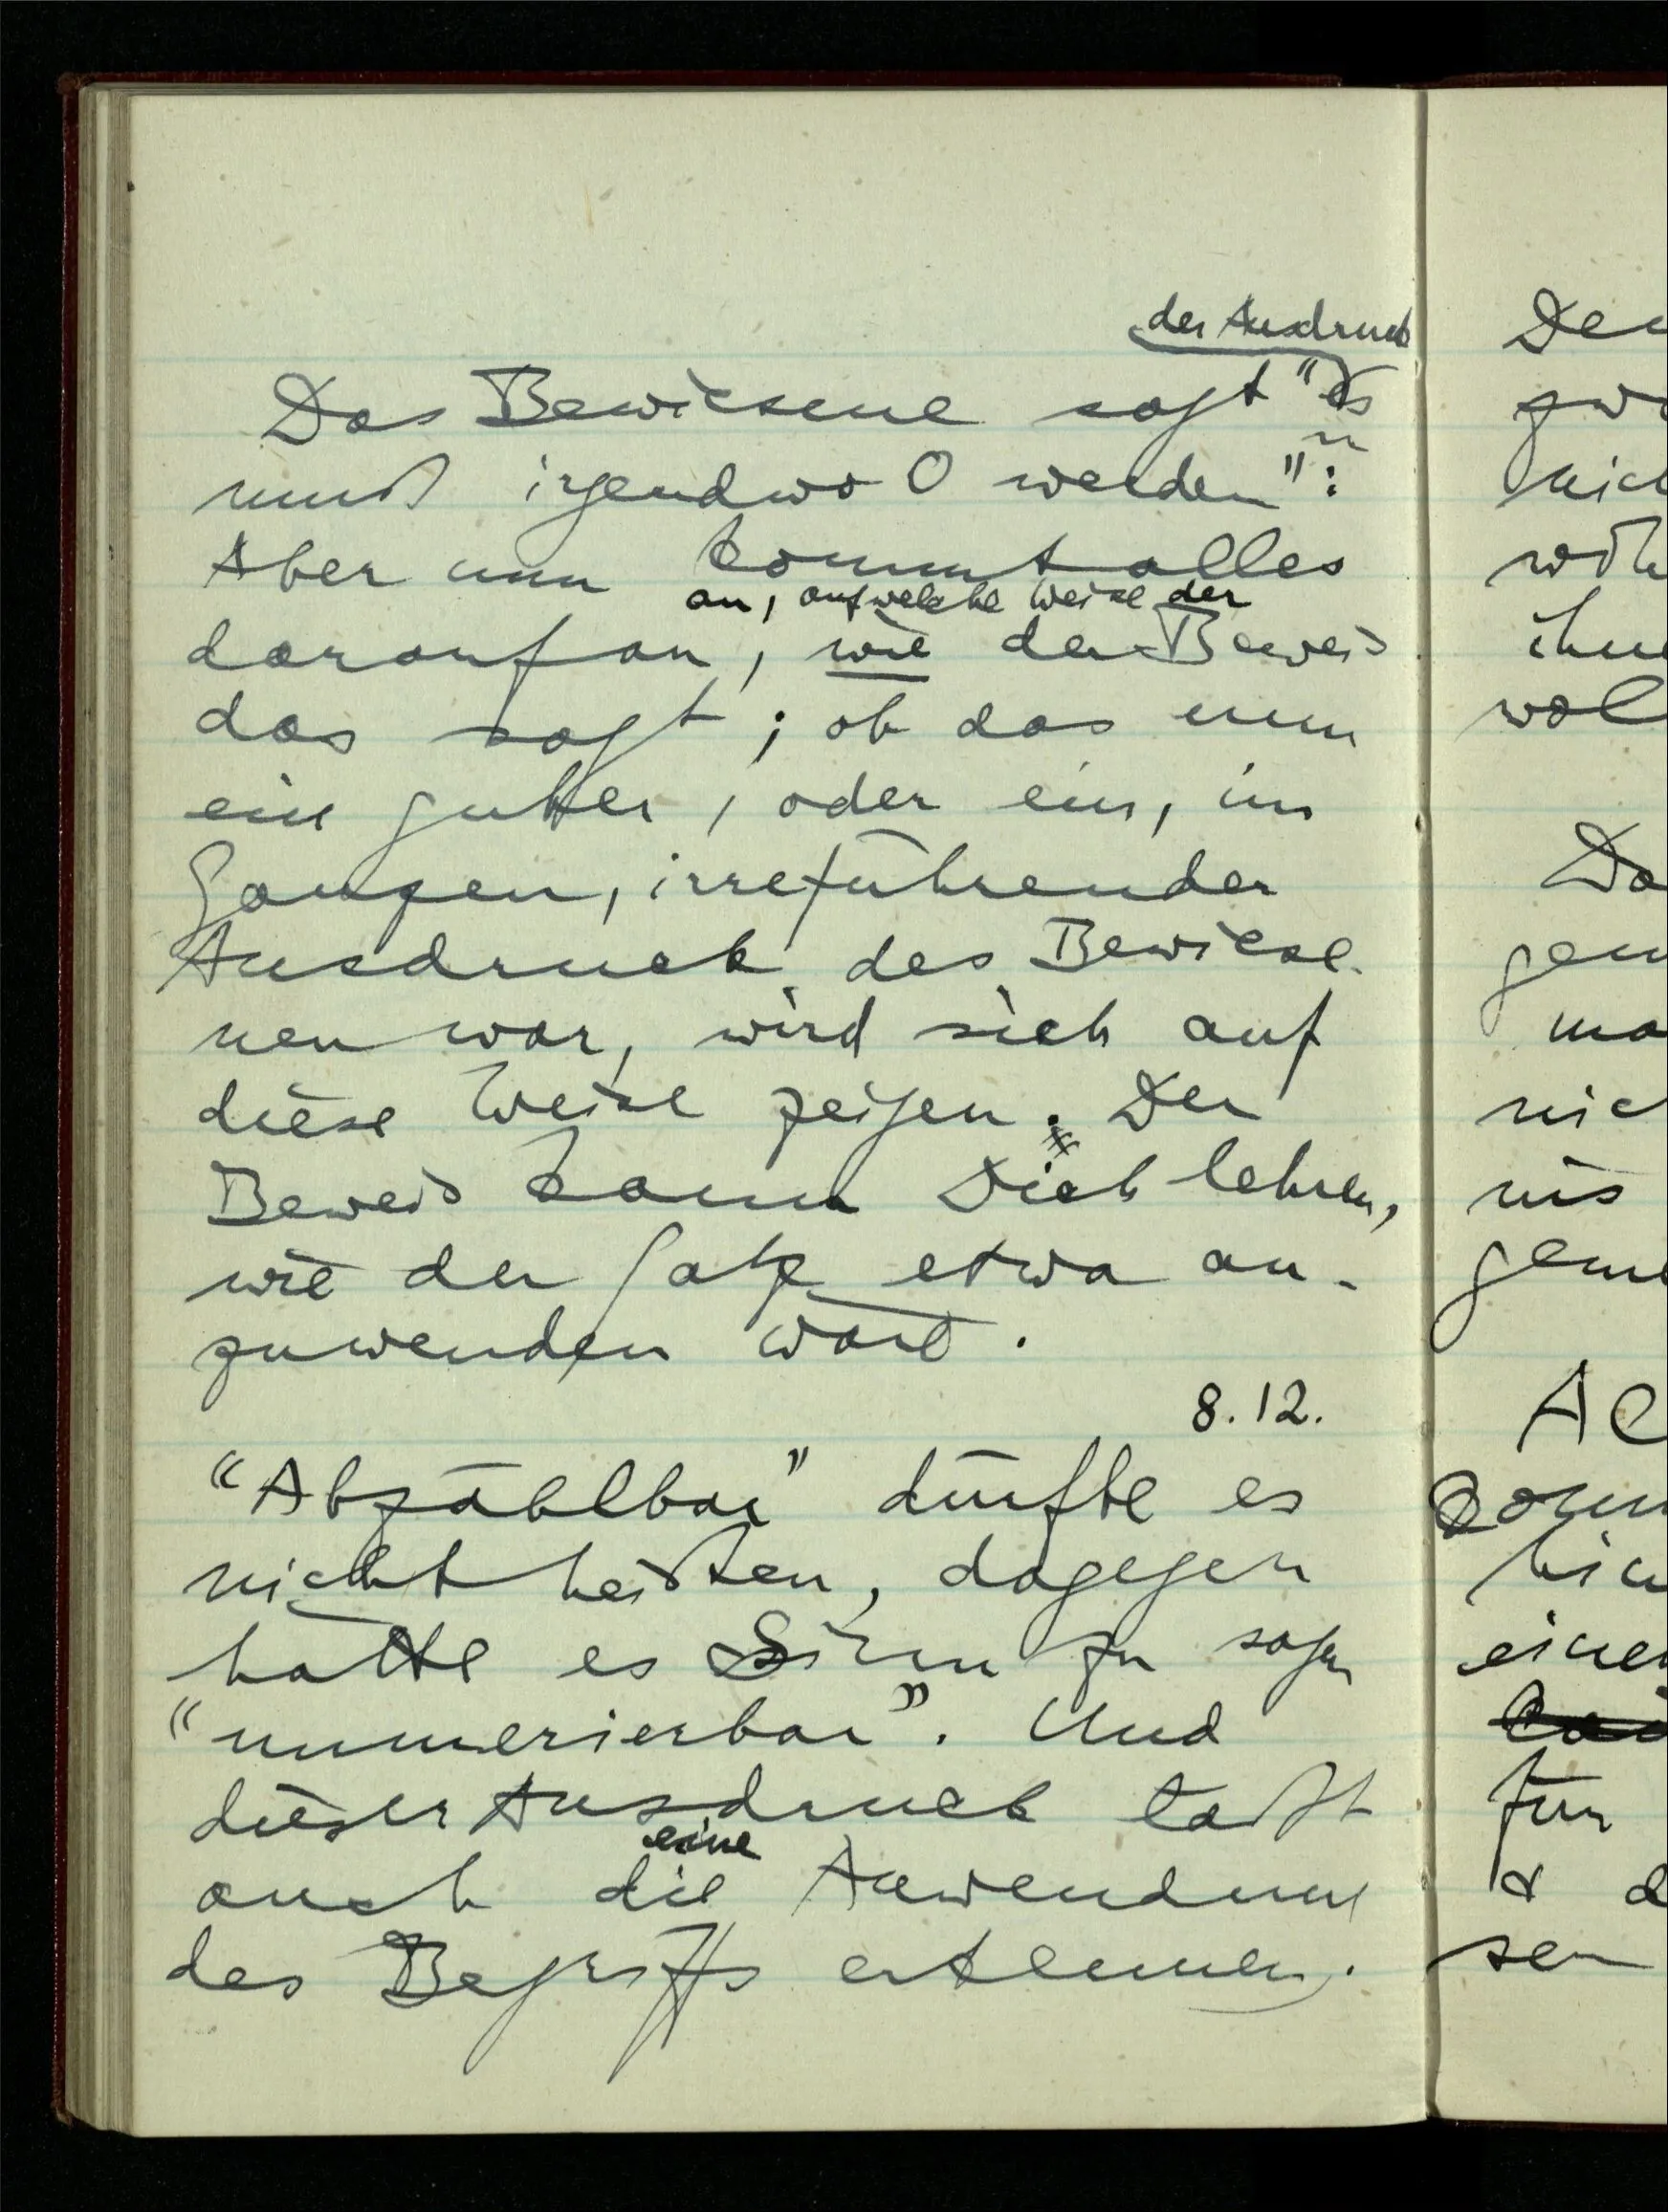 der Ausdruck
Das Bewiesene sagt "Es
muß irgendwo 0 werden":
Aber nun kommt alles
an, auf welche Weise der
darauf an, wie der Beweis
das sagt; ob das nun
ein guter, oder ein, im
Ganzen, irreführender
Ausdruck des Bewiese-
nen war, wird sich auf
diese Weise zeigen. Der
Beweis kann Dich lehren,
wie der Satz etwa an-
zuwenden wäre.
8.12.
"Abzählbar" dürfte es
nicht heißen, dagegen
hätte es Sinn zu sagen
"numerierbar". Und
dieser Ausdruck läßt
eine
auch die Anwendung
des Begriffs erkennen.